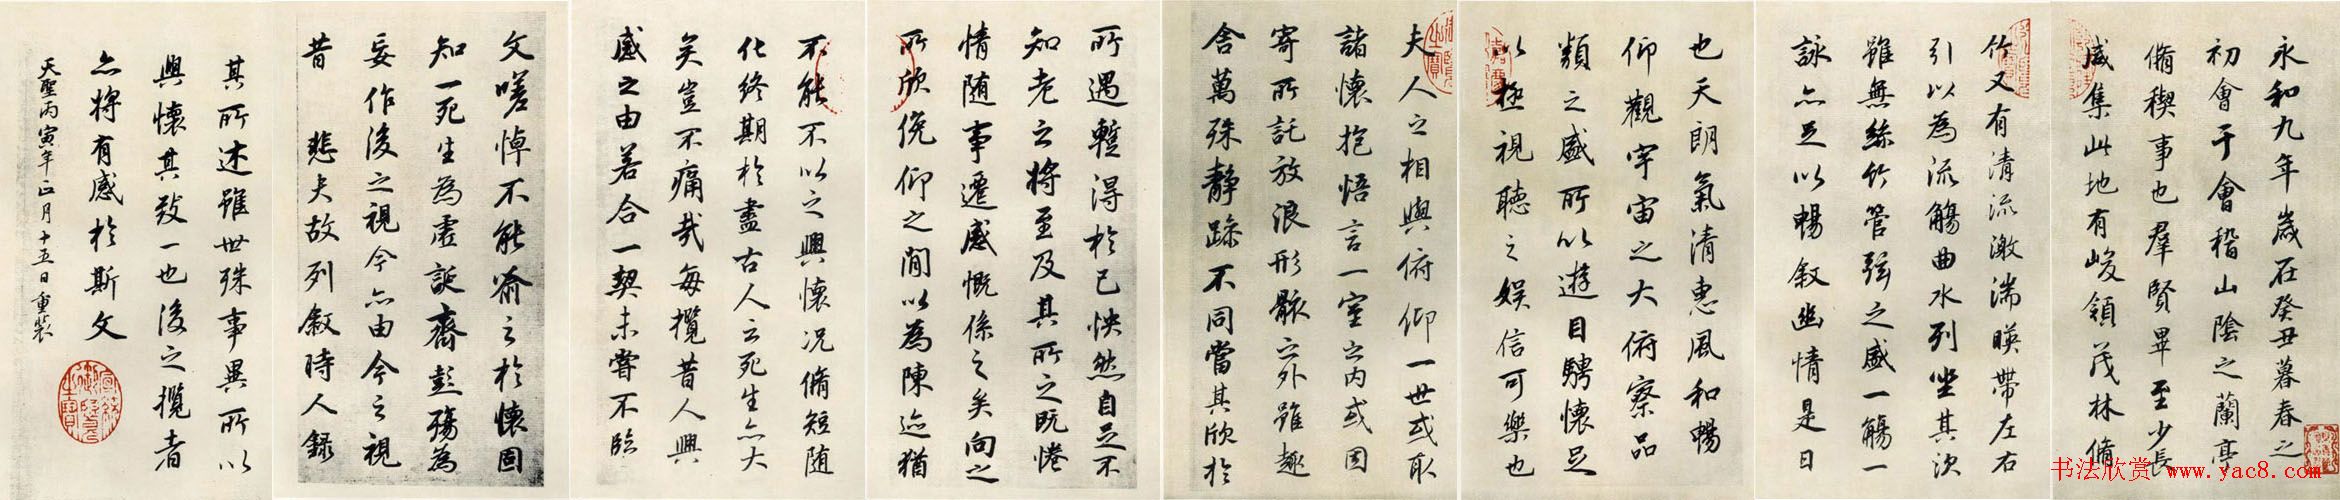 永和九年歲在癸丑暮春之
初會于會稽山陰之蘭亭
脩稧事也羣賢畢至少長
咸集此地有峻領茂林脩
竹又有清流激湍暎帶左右
引以為流觴曲水列坐其次
雖無絲竹管弦之盛一觴一
詠亦足以暢敘幽情是日
也天朗氣清惠風和暢
仰觀宇宙之大俯察品
類之盛所以遊目騁懷足
以極視聽之娛信可樂也
夫人之相與俯仰一世或取
諸懷抱悟言一室之內或因
寄所託放浪形骸之外雖趣
舍萬殊靜躁不同當其欣於
所遇蹔得於己怏然自足不
知老之將至及其所之既惓
情隨事遷感慨係之矣向之
所欣俛仰之閒以為陳迹猶
不能不以之興懷況脩短隨
化終期於盡古人云死生亦大
矣豈不痛哉每攬昔人興
感之由若合一契未嘗不臨
文嗟悼不能喻之於懷固
知一死生為虛誕齊彭殤為
妄作後之視今亦由今之視
昔 悲夫故列敘時人錄
其所述雖世殊事異所以
興懷其致一也後之攬者
亦將有感於斯文
天聖丙寅年正月十五日重裝
书法欣赏 www.yac8.com